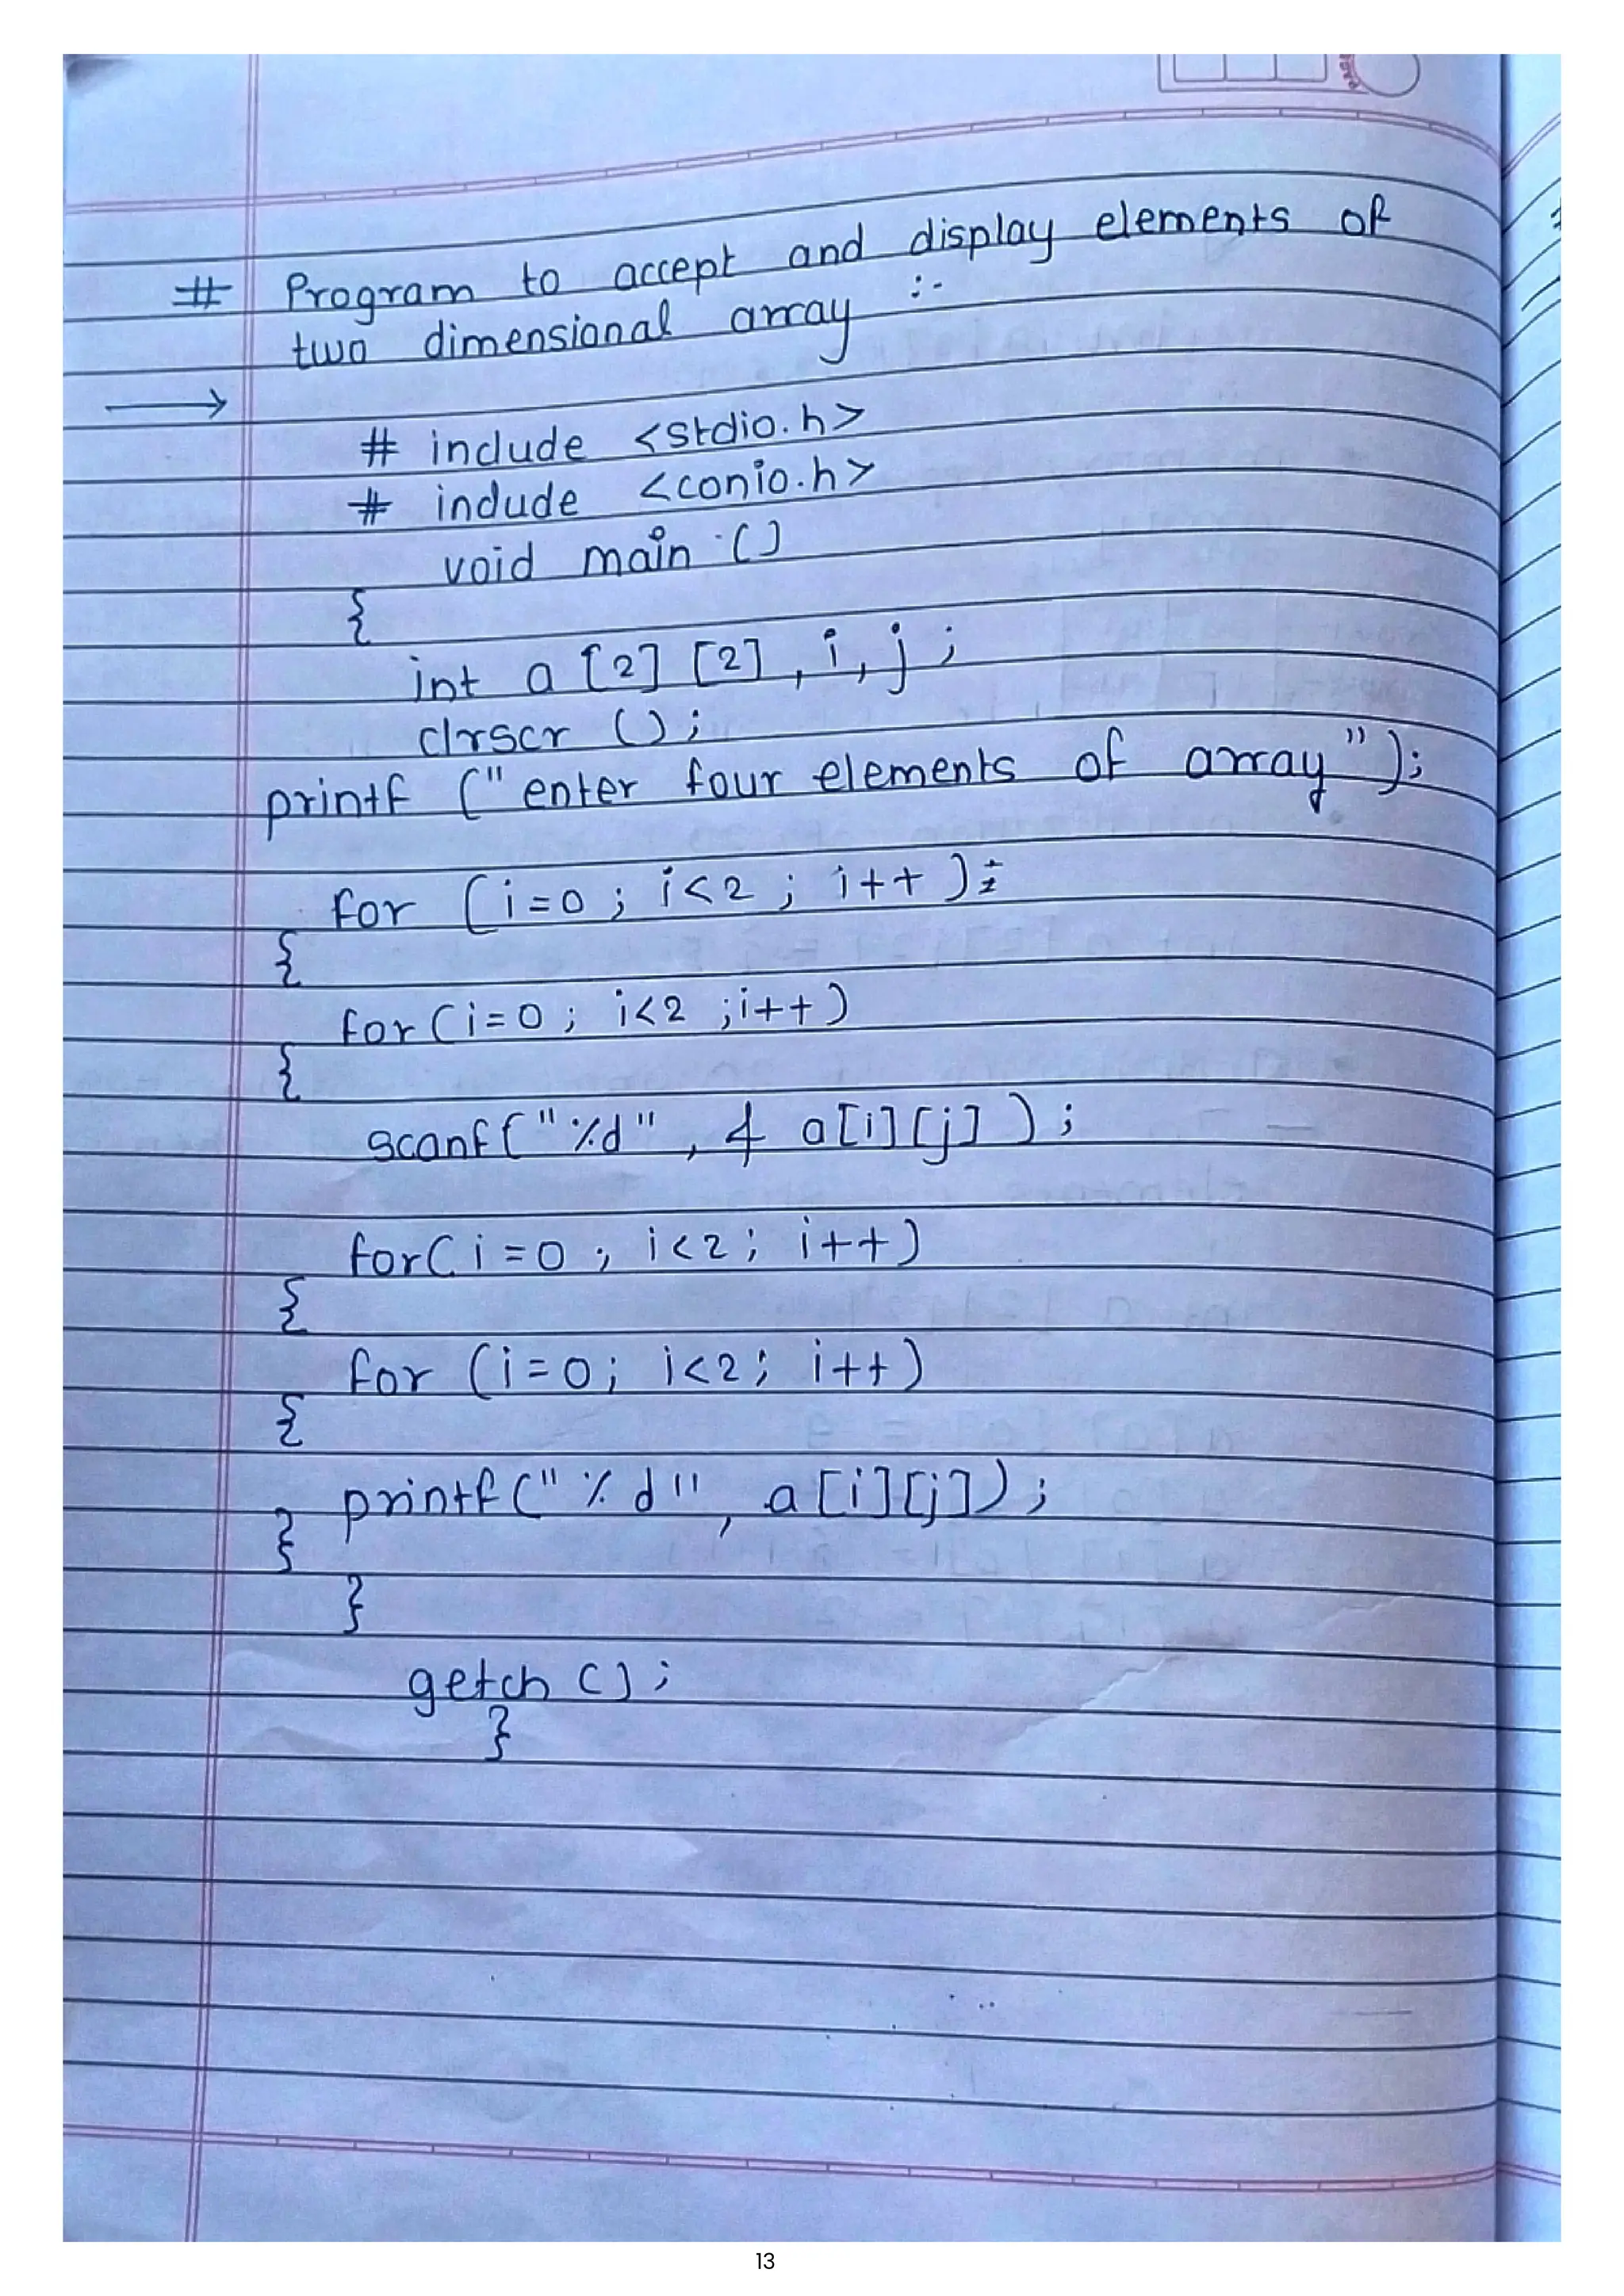 # Program to accept and display elements of
two dimensional array :-
→
# include <stdio.h>
# include <conio.h>
void main ()
{
int a [2] [2] , i, j ;
clrscr () ;
printf (" enter four elements of array ");
for (i=0 ; i<2 ; i++ );
{
for (i=0 ; i<2 ; i++)
{
scanf("%d" , & a[i][j] ) ;
for( i=0 ; i<2 ; i++)
{
for (i=0; i<2; i++)
{
printf("%d" , a[i][j]) ;
}
}
getch () ;
}
13